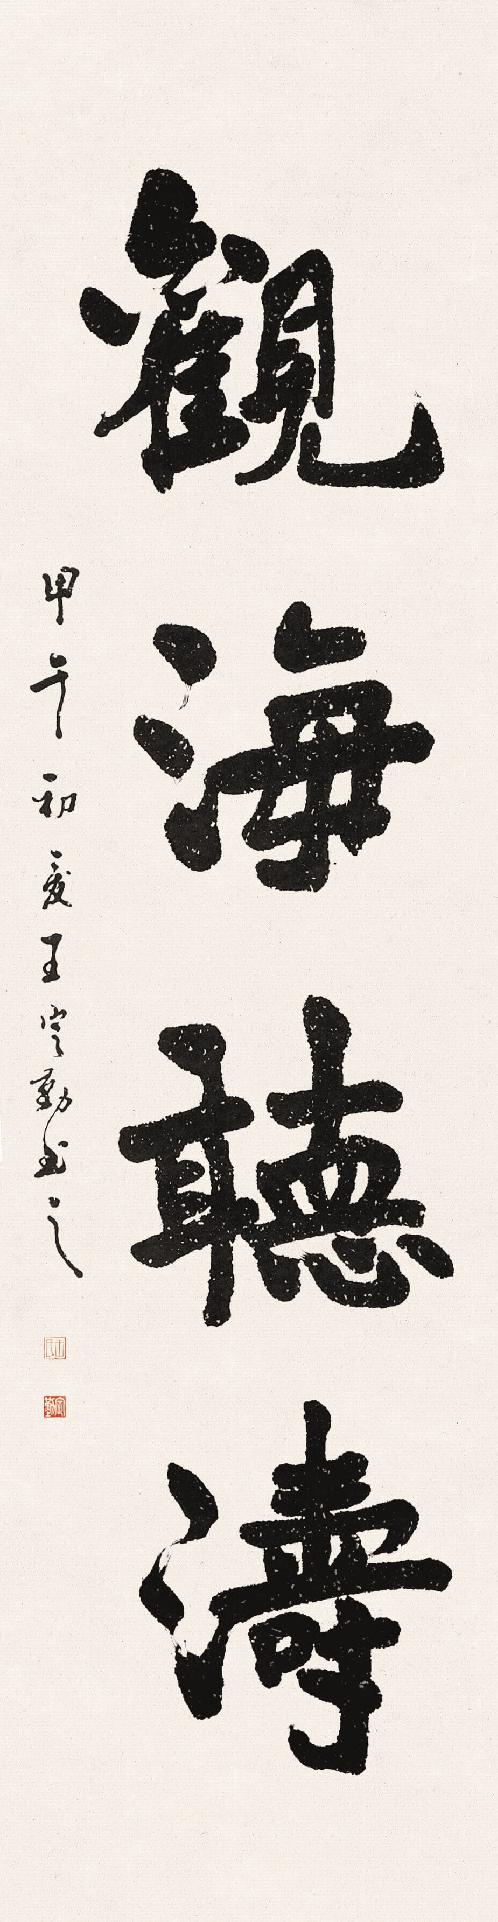 觀海聽濤
甲午初夏王定勤書之